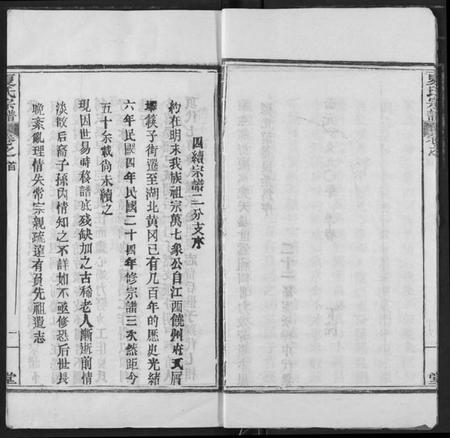 四續宗譜二分支水
約在明末我族祖宗萬七衆公自江西饒州府瓦屑
壩筷子街遷至湖北黃冈已有几百年的歷史光緒
六年民國四年民國二十四年修宗譜三次然距今
五十余載尚未續之
現因世易時移譜底残缺加之古稀老人漸逝前情
淡沒后裔子孫内情知之不詳如不亟修恐后世長
聰紊亂理情失常宗親疏遠有負先祖遺志
夏氏宗譜
卷之首
一
堂
夏氏宗譜
卷之
堂